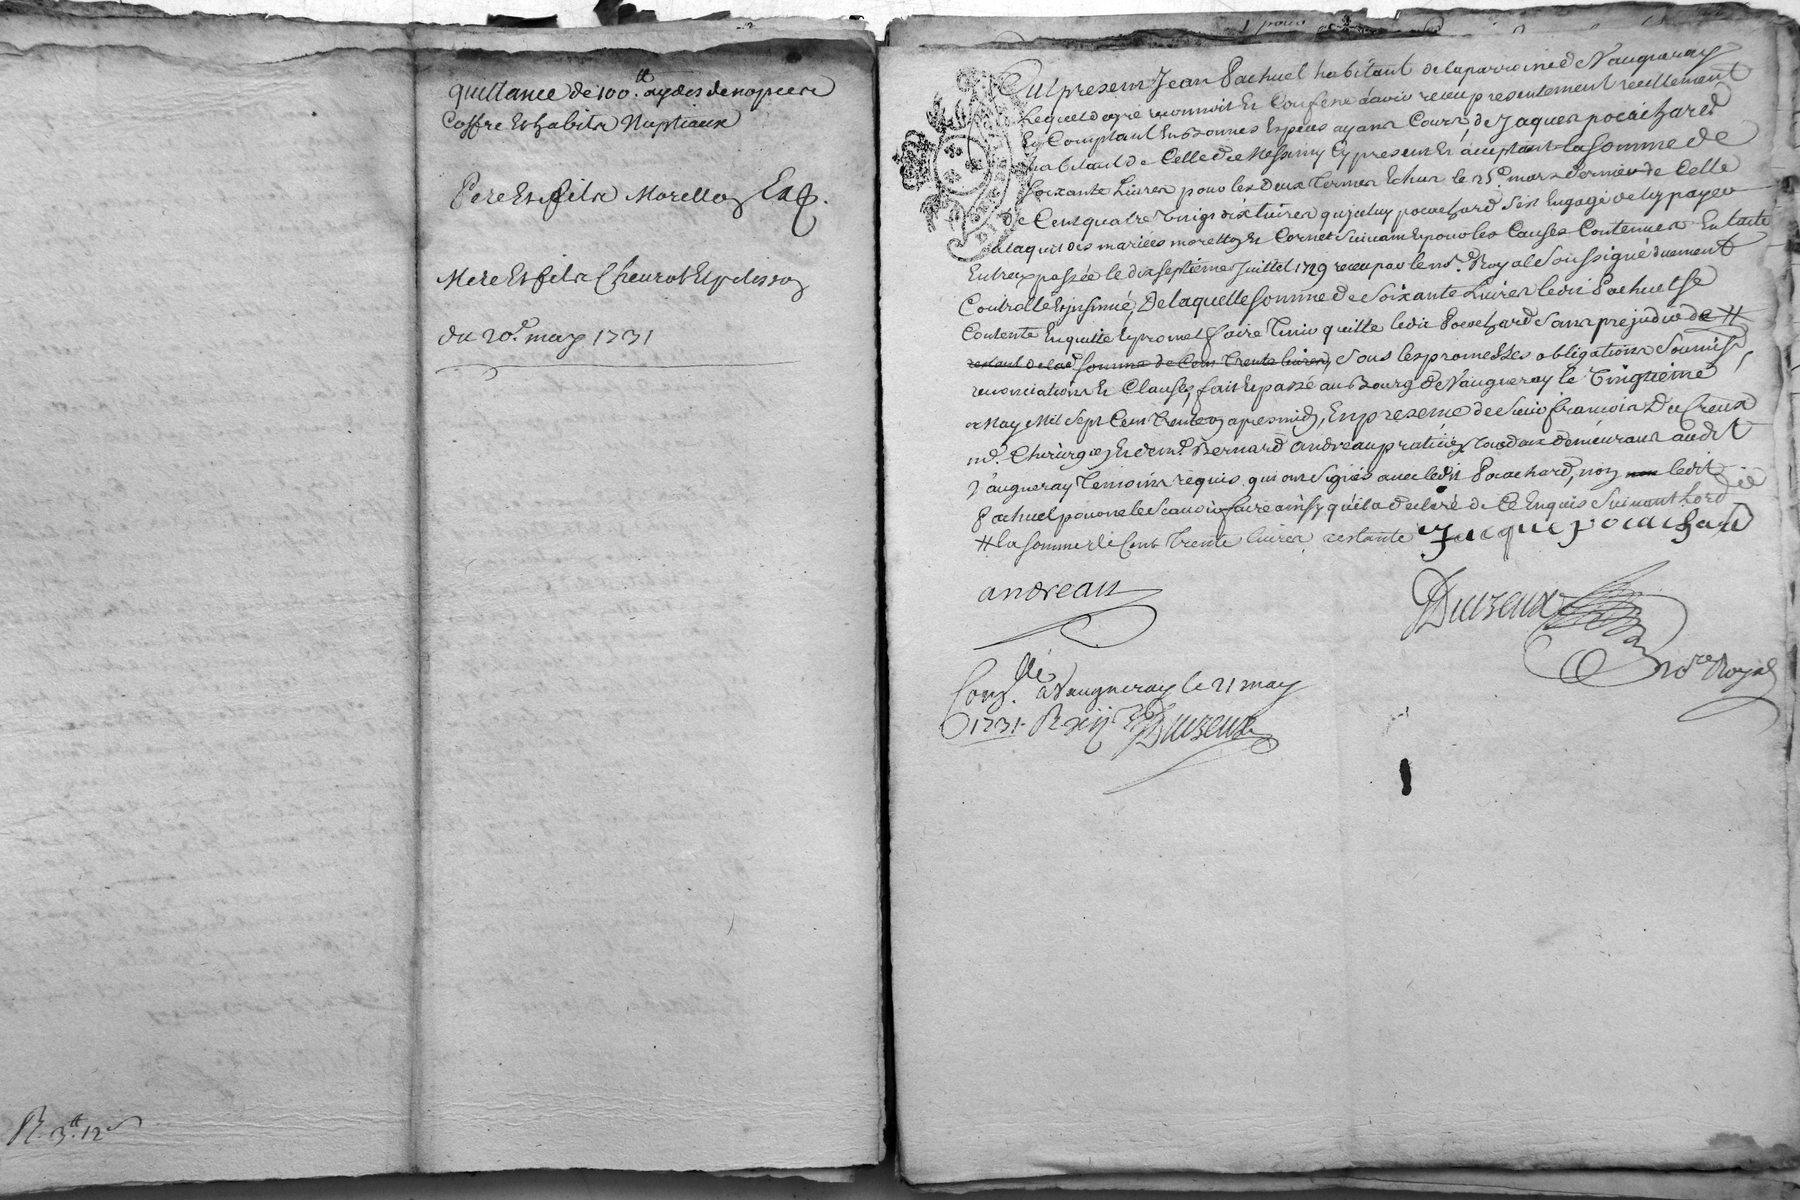 quittance de 100.tt aydes de nopce
Coffre Et habits Nuptiaux
Pere Et fils Morellon
Mere Et fils Cheurot Et pelisson
du 20.e may 1731
R. 3.tt 12 s
fut present Jean Pachuel habitant de la parroisse de Vaugneray
Lequel de gré reconnoit Et Confesse avoir receu presentement reellement
Et Comptant En bonnes Especes ayans Cours, de Jaques pocachard
habitant de Celle de Messimy Cy present Et acceptant la somme de
soixante Livres pour les deux termes Echus le 25.e mars dernier de Celle
de Cent quatre vingt dix livres que jceluy pocachard s'est Engagé de luy payer
a l'aquit des mariées morellon Et Cornet suivant Et pour les Causes Contenues En l'acte
Entreux passée le dix septieme Juillet 1729 receu par le no.re Royal soussigné duement
Controllé Et jnsinué, De laquelle somme de soixante Livres ledit Pachuel se
Contente En quitte Et promet faire tenir quitte ledit Pocachard sans prejudice de #
restant de lad. somme de Cent trente livres, sous les promesses obligations soumiss.
renonciations Et Clauses, fait Et passé au Bourg de Vaugneray le vingtieme
May Mil sept Cent trente un apres midy, En presence de sieur françois Ducreux
m.e Chirurgien Et de m.e Bernard andreau praticien tous deux demeurans audit
Vaugneray temoins requis, qui ont signés avec ledit Pocachard, non ledit
Pachuel pour ne le scavoir faire ainsy qu'il a declaré de Ce Enquis suivant l'ord.
# la somme de Cent trente livres restante Jacque pocachard
andreau
Duczeux
no.re Royal
Con.llé a Vaugneray le 21 may
1731. R. xij s. Duczeux